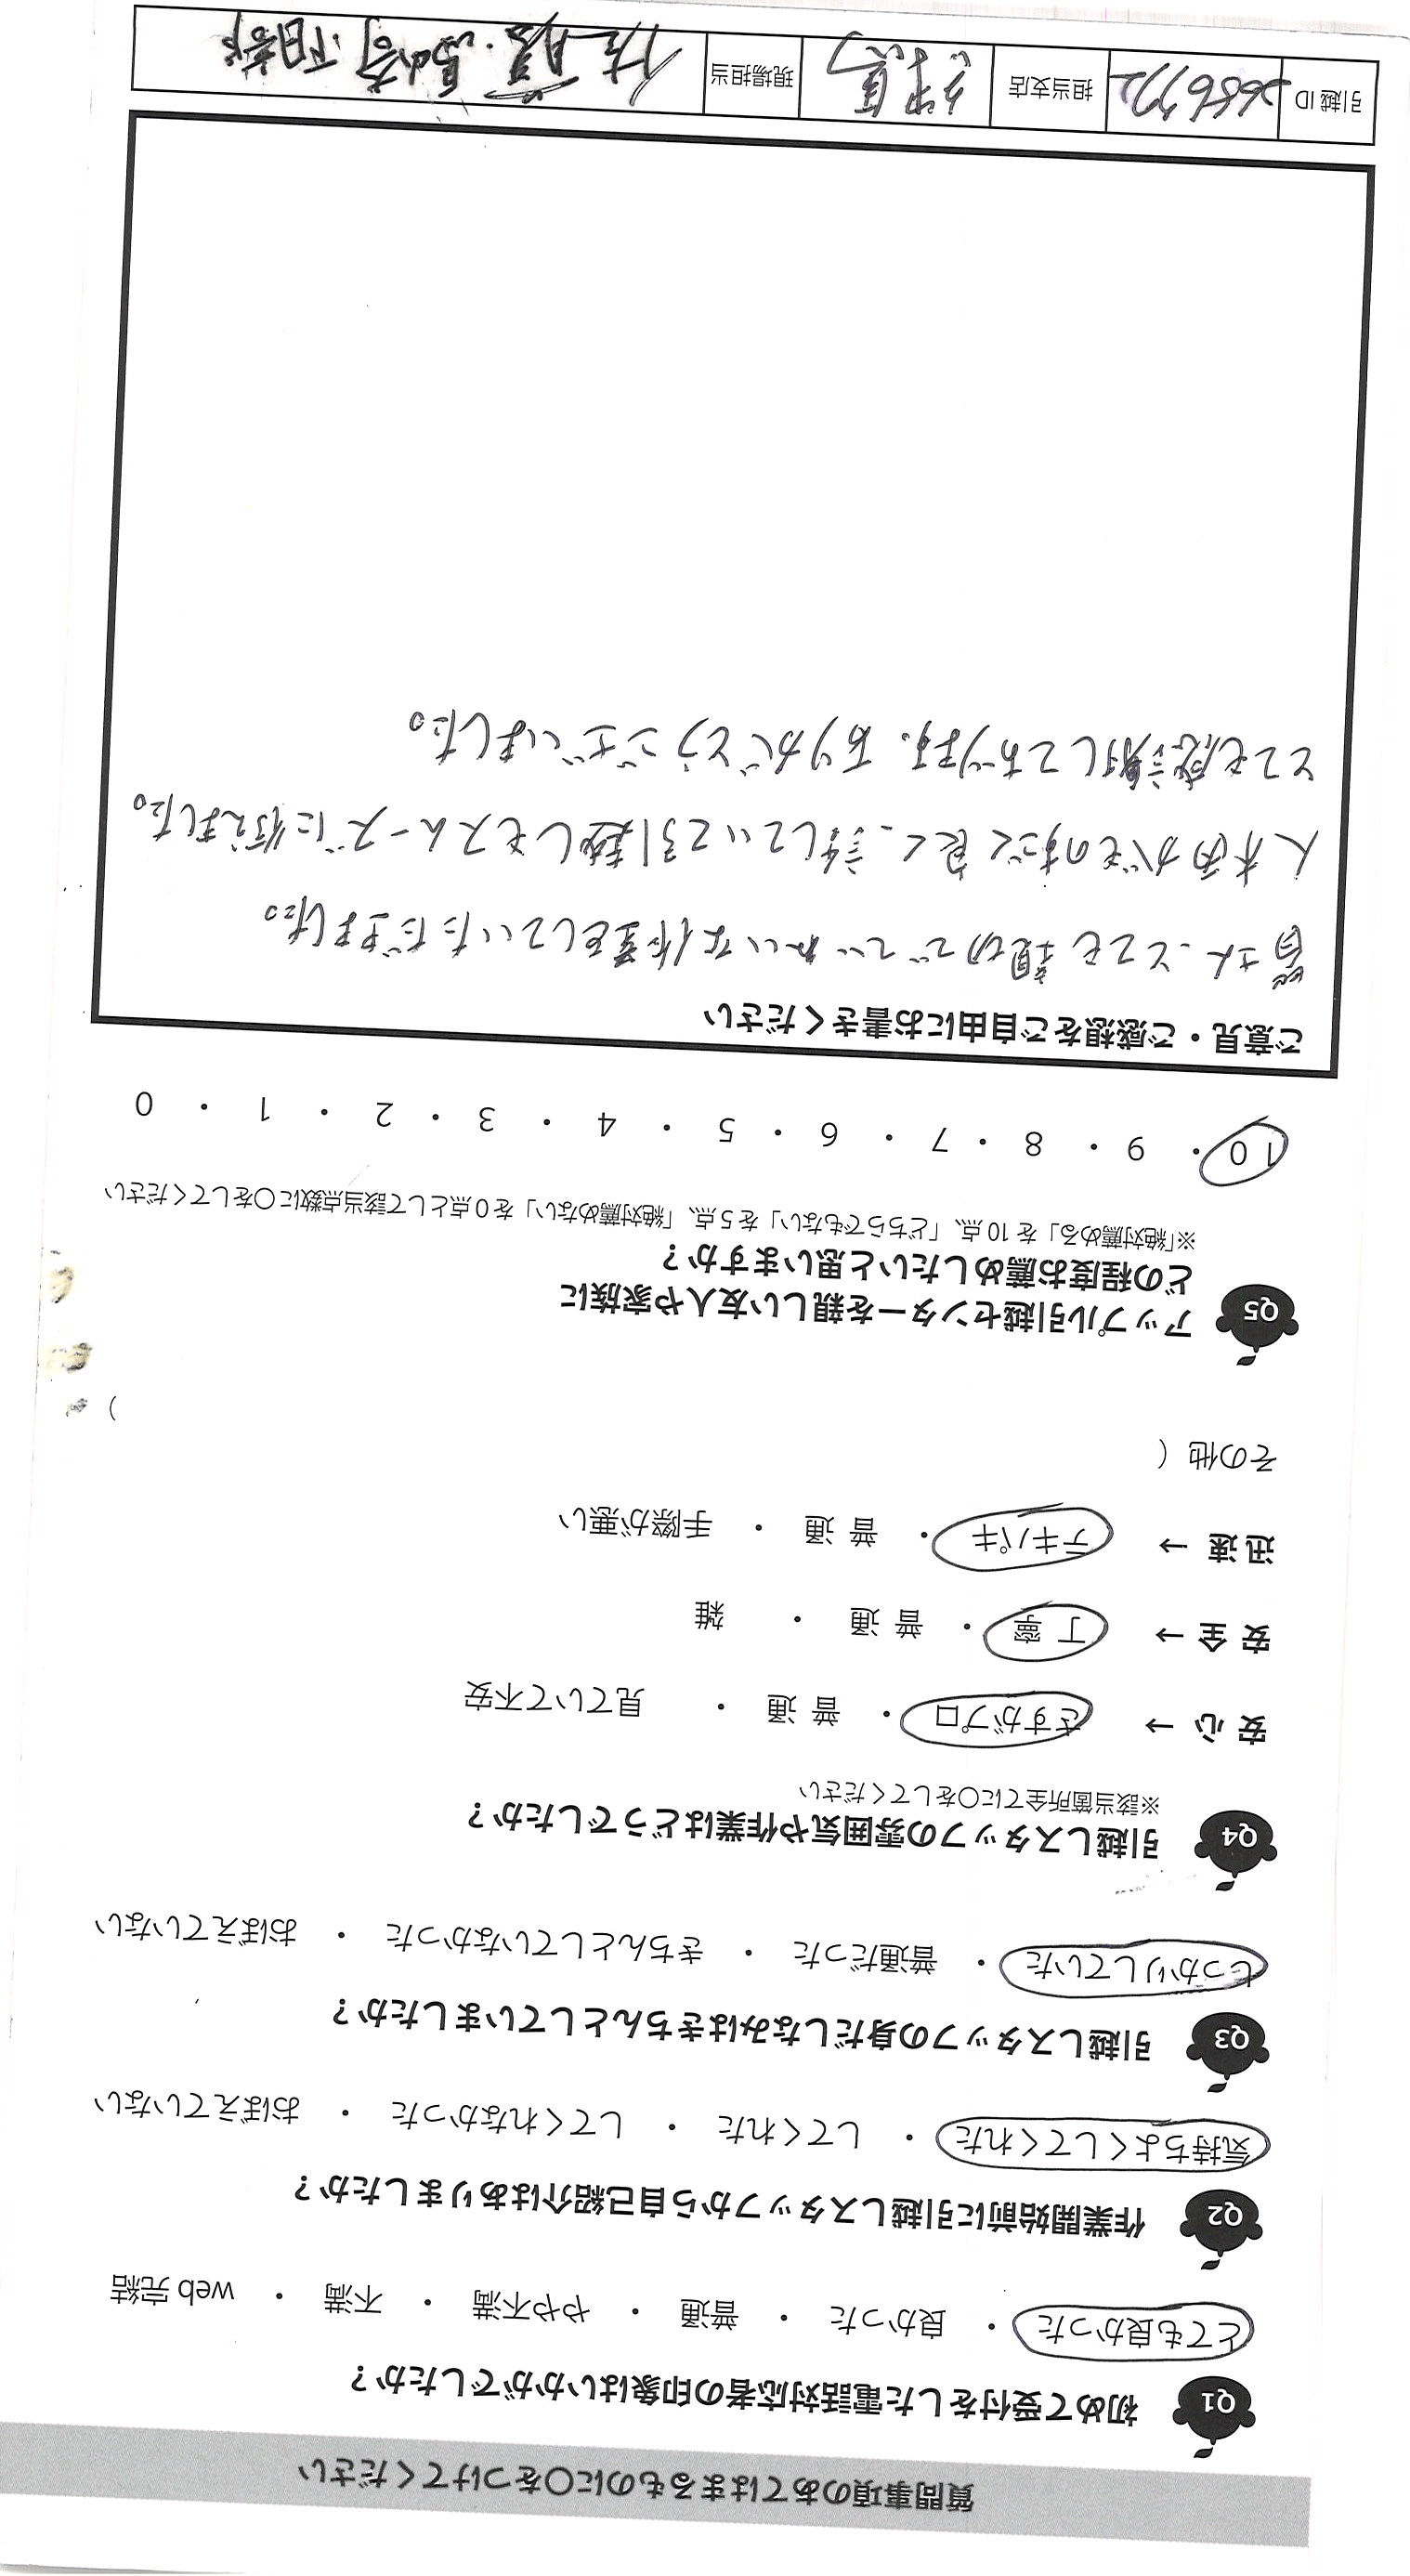 質問事項のあてはまるものに○をつけてください
Q1 初めて受付をした電話対応者の印象はいかがでしたか？
とても良かった ・ 良かった ・ 普通 ・ やや不満 ・ 不満 ・ web完結
Q2 作業開始前に引越しスタッフから自己紹介はありましたか？
気持ちよくしてくれた ・ してくれた ・ してくれなかった ・ おぼえていない
Q3 引越しスタッフの身だしなみはきちんとしていましたか？
しっかりしていた ・ 普通だった ・ きちんとしていなかった ・ おぼえていない
Q4 引越しスタッフの雰囲気や作業はどうでしたか？
※該当箇所全てに○をしてください
安心 → さすがプロ ・ 普通 ・ 見ていて不安
安全 → 丁寧 ・ 普通 ・ 雑
迅速 → テキパキ ・ 普通 ・ 手際が悪い
その他（ ）
Q5 アップル引越センターを親しい友人や家族に
どの程度お薦めしたいと思いますか？
※「絶対薦める」を10点、「どちらでもない」を5点、「絶対薦めない」を0点として該当点数に○をしてください
10 ・ 9 ・ 8 ・ 7 ・ 6 ・ 5 ・ 4 ・ 3 ・ 2 ・ 1 ・ 0
ご意見・ご感想をご自由にお書きください
皆さん、とても親切でていねいな作業をしていただきました。
人木丙がものすごく良く、話していて引越しもスムーズに行えました。
とても感謝しております。ありがとうございました。
引越ID 2686772 担当支店 練馬 現場担当 佐藤・島崎・阿部